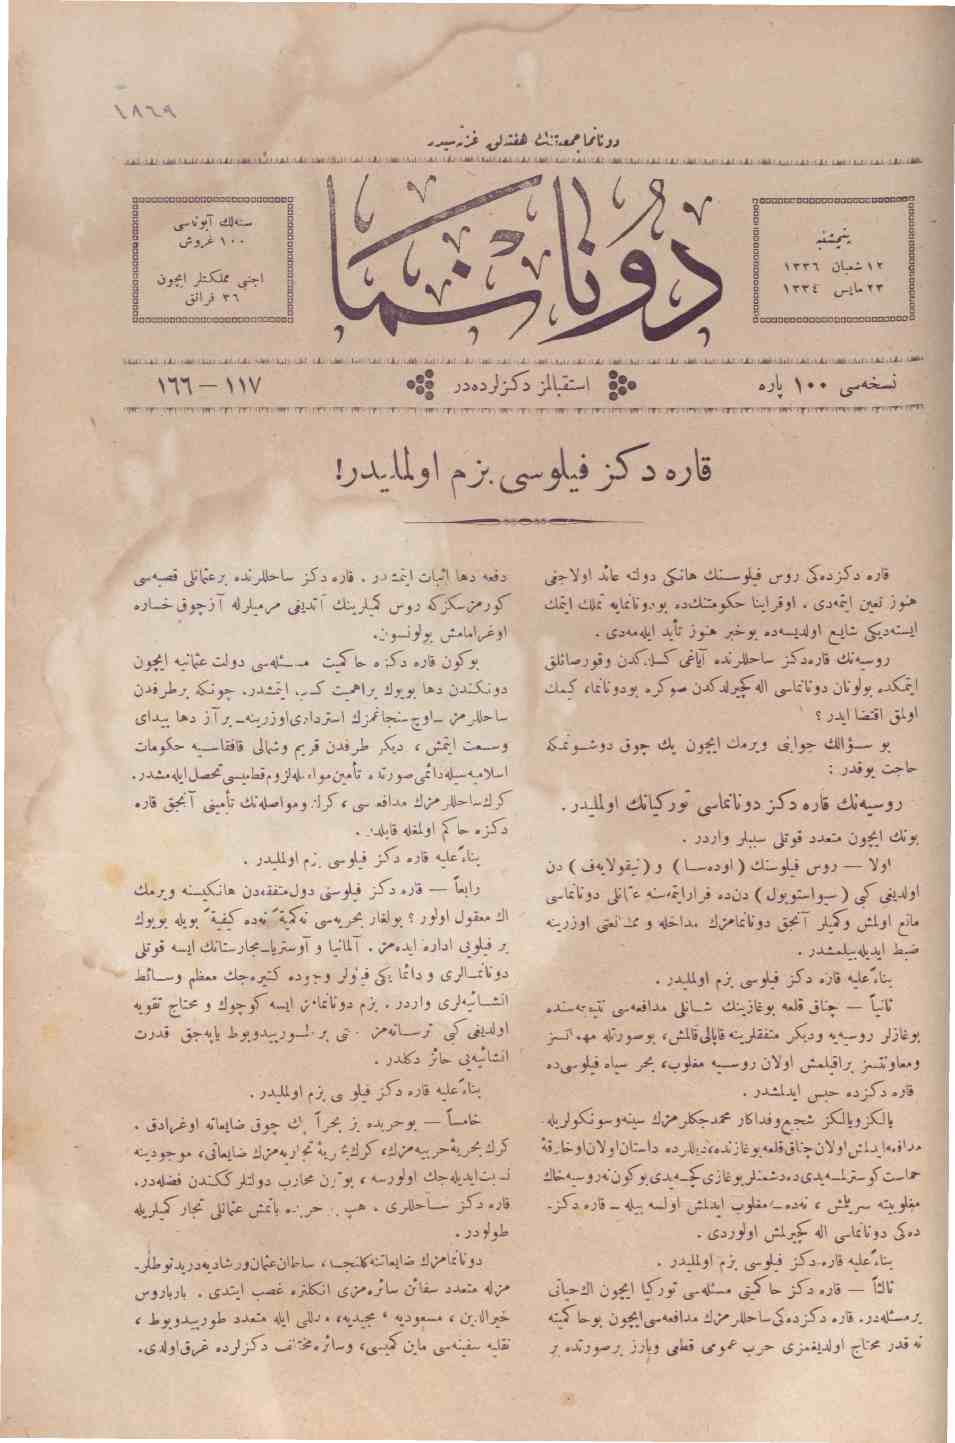 ١٨٦٩
دونانما جمعیتنك هفته‌لق غزته‌سیدر
پنجشنبه
١٢ شعبان ١٣٣٦
٢٣ مایس ١٣٣٤
دونانما
سنه‌لك آبونه‌سی
١٠٠ غروش
اجنبی مملكتلر ایچون
٣٦ فرانق
نسخه‌سی ١٠٠ پاره
استقبالمز دكزلرده‌در
١١٧ — ١٦٦
قاره دكز فیلوسی بزم اولمالیدر!
قاره دكزده‌كی روس فیلوسنك هانكی دولته عائد اولاجغی
هنوز تعین ایتمه‌دی. اوقراینا حكومتنك‌ده بو دونانمایه تملك ایتمك
ایسته‌دیكی شایع اولدیسه‌ده بو خبر هنوز تأید ایله‌مه‌دی.
روسیه‌نك قاره‌دكز ساحللرنده آیاغی كسیلدكدن وقورصانلق
ایتمكده بولونان دونانماسی اله كچیرلدكدن صوكره بودونانما، كیمك
اولمق اقتضا ایدر؟
بو سؤالك جوابنی ویرمك ایچون پك چوق دوشونمكه
حاجت یوقدر:
روسیه‌نك قاره دكز دونانماسی توركیانك اولملیدر.
بونك ایچون متعدد قوتلی سببلر واردر.
اولا — روس فیلوسنك (اوده‌سا) و (نیقولایه‌ف) دن
اولدیغی كبی (سیواستوپول) دن‌ده فرار ایتمه‌سنه عثمانلی دونانماسی
مانع اولمش وكمیلر آنجق دونانمامزك مداخله و ممانعتی اوزرینه
ضبط ایدیله‌بیلمشدر.
بناءً علیه قاره دكز فیلوسی بزم اولملیدر.
ثانیاً — چناق قلعه بوغازینك شانلی مدافعه‌سی نتیجه‌سنده
بوغازلر روسیه‌یه ودیكر متفقلرینه قاپالی قالمش، بوصورتله مهماتسز
ومعاونتسز براقیلمش اولان روسیه مغلوب، بحر سیاه فیلوسی‌ده
قاره دكزده حبس ایدلمشدر.
یالكز ویالكز شجیع وفداكار محمدجكلرمزك سینه وسونكولریله
مدافعه ایدلمش اولان چناق قلعه بوغازنده، دیللرده داستان اولان او خارقهٔ
حماست كوسترلمه‌یدی ده دشمنلر بوغازی كچسه‌یدی بوكون نه روسیه خاك
مغلوبیته سریلمش، نه‌ده — مغلوب ایدلمش اولسه بیله — قاره دكز-
ده‌كی دونانماسی اله كچیرلمش اولوردی.
بناءً علیه قاره دكز فیلوسی بزم اولملیدر.
ثالثاً — قاره دكز حاكمیتی مسئله‌سی توركیا ایچون اك حیاتی
بر مسئله‌در. قاره دكزده‌كی ساحللرمزك مدافعه‌سی ایچون بو حاكمیته
نه قدر محتاج اولدیغمزی حرب عمومی قطعی وبارز بر صورتده بر
دفعه دها اثبات ایتمشدر. قاره دكز ساحللرنده بر عثمانلی قصبه‌سی
كورمزسكز كه روس كمیلرینك آتدیغی مرمیلرله آز چوق خساره
اوغرامامش بولونسون.
بوكون قاره دكزه حاكمیت مسئله‌سی دولت عثمانیه ایچون
دونكندن دها بویوك بر اهمیت كسب ایتمشدر. چونكه بر طرفدن
ساحللرمز — اوچ سنجاغمزك استردادی اوزرینه — بر آز دها پیدای
وسعت ایتمش، دیكر طرفدن قریم وشمالی قافقاسیه حكومات
اسلامیه‌سیله دائمی صورتده تأمین مواصله لزوم قطعیسی تحصل ایله‌مشدر.
كرك ساحللرمزك مدافعه‌سی، كرك مواصله‌نك تأمینی آنجق قاره
دكزه حاكم اولمغله قابلدر.
بناءً علیه قاره دكز فیلوسی بزم اولملیدر.
رابعاً — قاره دكز فیلوسنی دول متفقه‌دن هانكیسنه ویرمك
اك معقول اولور؟ بولغار بحریه‌سی نه كمیةً نه‌ده كیفیةً بویله بویوك
بر فیلویی اداره ایده‌مز. آلمانیا و آوستریا-مجارستانك ایسه قوتلی
دونانمالری و دائما یكی فیلولر وجوده كتیره‌جك معظم وسائط
انشائیه‌لری واردر. بزم دونانمامز ایسه كوچوك و محتاج تقویه
اولدیغی كبی ترسانه‌مز بر طورپیدوبوط یاپه‌جق قدرت
انشائیه‌یی حائز دكلدر.
بناءً علیه قاره دكز فیلوسی بزم اولملیدر.
خامساً — بو حربده بز بحراً پك چوق ضایعاته اوغرادق.
كرك بحریهٔ حربیه‌مزك، كرك بحریهٔ تجاریه‌مزك ضایعاتی، موجودینه
نسبت ایدیله‌جك اولورسه، بوتون محارب دولتلركندن فضله‌در.
قاره دكز ساحللری. هپ حربده باتمش عثمانلی تجار كمیلریله
طولودر.
دونانمامزك ضایعاتنه كلنجه، سلطان عثمان ورشادیه دریدنوطلر-
مزله متعدد سفائن سائره‌مزی انكلتره غصب ایتدی. بارباروس
خیرالدین، مسعودیه، مجیدیه، مدللی ایله متعدد طورپیدوبوط،
نقلیه سفینه‌سی ماین كمیسی، وسائره مختلف دكزلرده غرق اولدی.